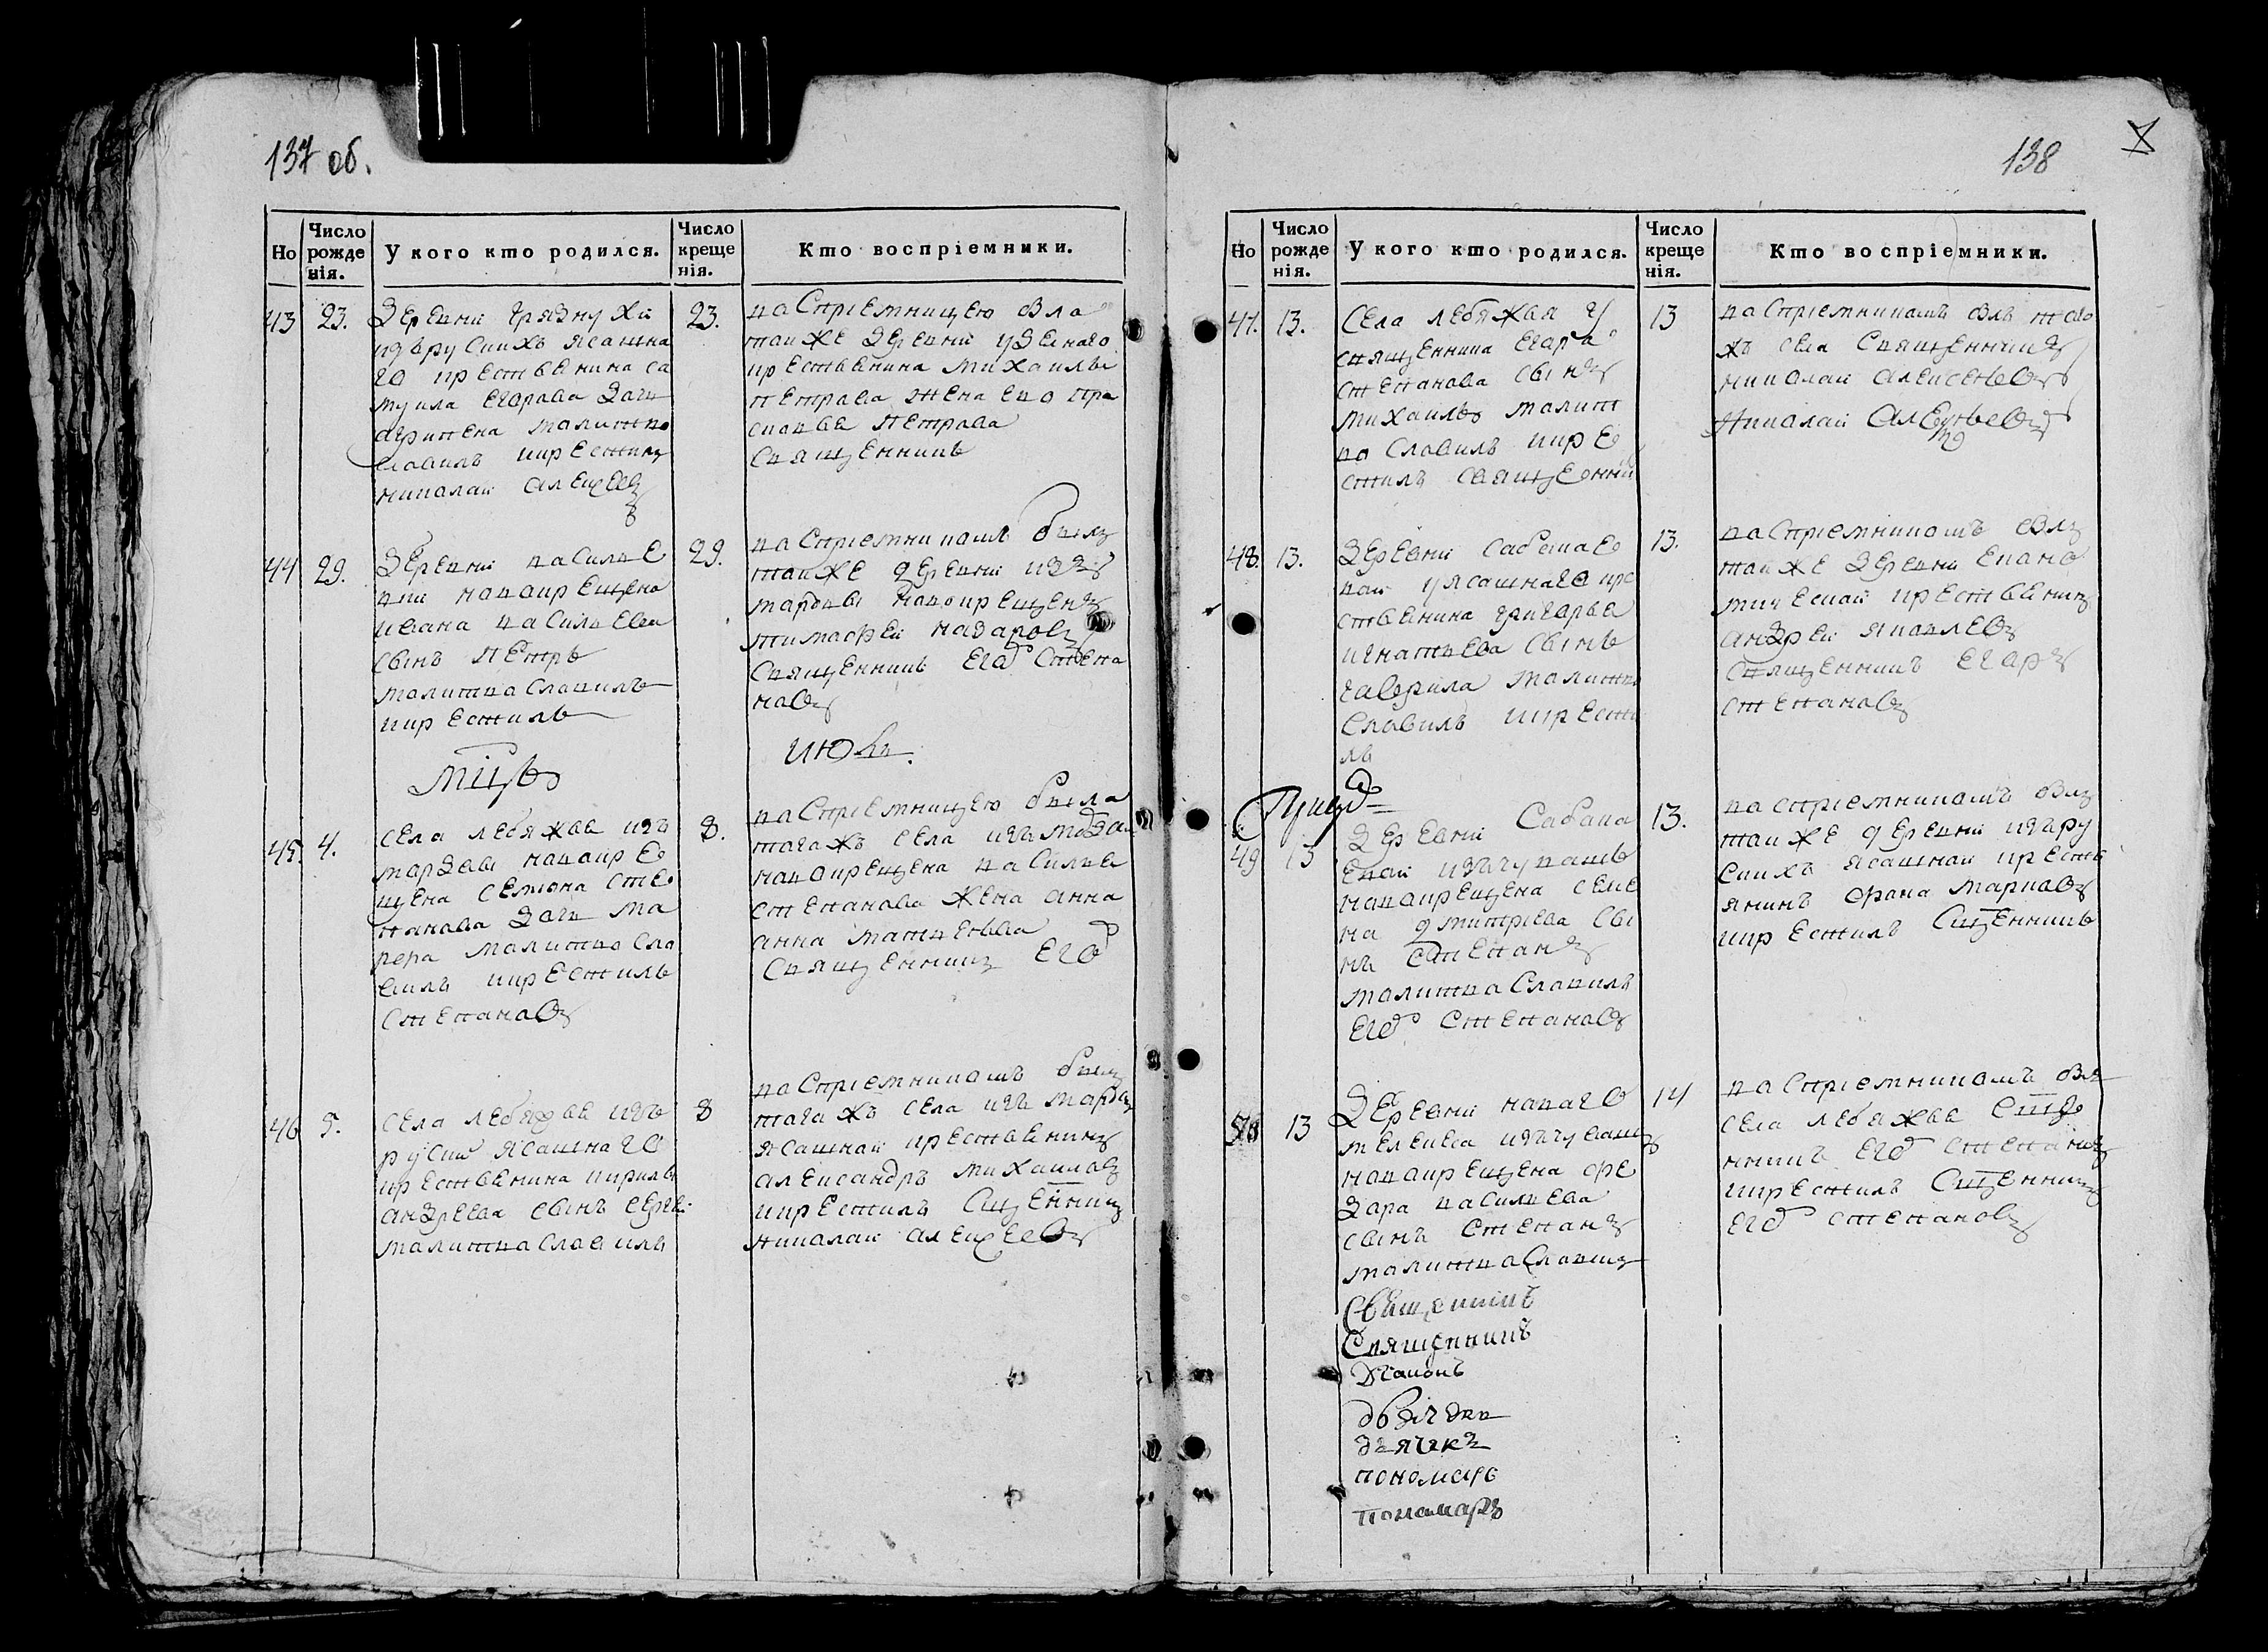 137 об.
Но
Число рожде нія.
У кого кто родился.
Число креще нія.
Кто воспріемники.
43 23. Деревни грязнухи
из русскихъ ясашна
го крестьянина са
муила егорава дочь
агрипена молитво
славилъ икрестилъ
николаи алексеевъ
23. воспріемницею была
тоиже деревни удельнаго
крестьянина михаилы
петрава жена ево пра
сковья петрава
священникъ
44 29. Деревни василье
вки новокрещена
ивана васильева
сынъ петръ
молитвословилъ
икрестилъ
29. воспріемникомъ былъ
тоиже деревни изъ
мордвы новокрещенъ
тимофеи назаровъ
священникъ его степа
новъ
июль
45. 4. села лебяжья изъ
мордвы новокре
щена семиона сте
панова дочь ма
вера молитвосло
вилъ икрестилъ
степановъ
8. воспріемницею была
тогожъ села изъ мордвы
новокрещена василья
степанова жена анна
анна матвеева
священникъ его
46 5. села лебяжья изъ
руски ясашнаго
крестьянина кирилы
андреева сынъ сергеи
молитвословилъ
8 воспріемникомъ былъ
тогожъ села изъ мордвы
ясашнаи крестьянинъ
александръ михаиловъ
икрестилъ сщенникъ
николаи алексеевъ
138
Но
Число рожде нія.
У кого кто родился.
Число креще нія.
Кто воспріемники.
47. 13. села лебяжья у
священника егора
степанова сынъ
михаилъ молит
вословилъ икре
стилъ священни
13 воспріемникомъ былъ того
жъ села священникъ
николаи алексеевъ
николаи алексеевъ
48. 13. деревни сабакае
вои уясашнаго кре
стьянина григорья
игнатьева сынъ
гаврила молитво
словилъ икрести
лъ
13. воспріемникомъ былъ
тоиже деревни
крестьянинъ
андреи яковлевъ
священникъ егоръ
степановъ
49 13 деревни сабака
евои изъчувашъ
новокрещена семе
на дмитриева сы
нъ степанъ
молитвословилъ
его степановъ
13. воспріемникомъ былъ
тоиже деревни изъру
скихъ ясашнаи кресть
янинъ фока марковъ
икрестилъ сщенникъ
50 13 деревни новаго
изъчувашъ
новокрещена фе
дора васильева
сынъ степанъ
молитвословилъ
14 воспріемникомъ былъ
села лебяжья сще
нникъ его степановъ
икрестилъ сщенникъ
его степановъ
Священникъ
Священникъ
Діаконъ
дьячекъ
дьячекъ
пономарь
пономаръ